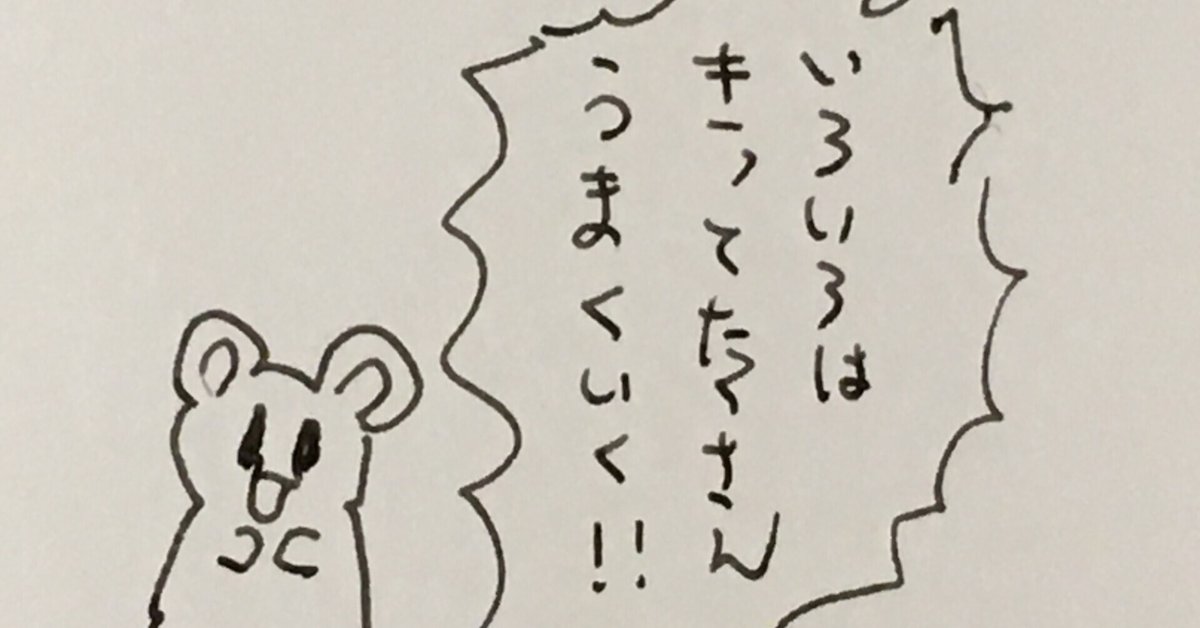 いろいろは
きってたくさん
うまくいく!!